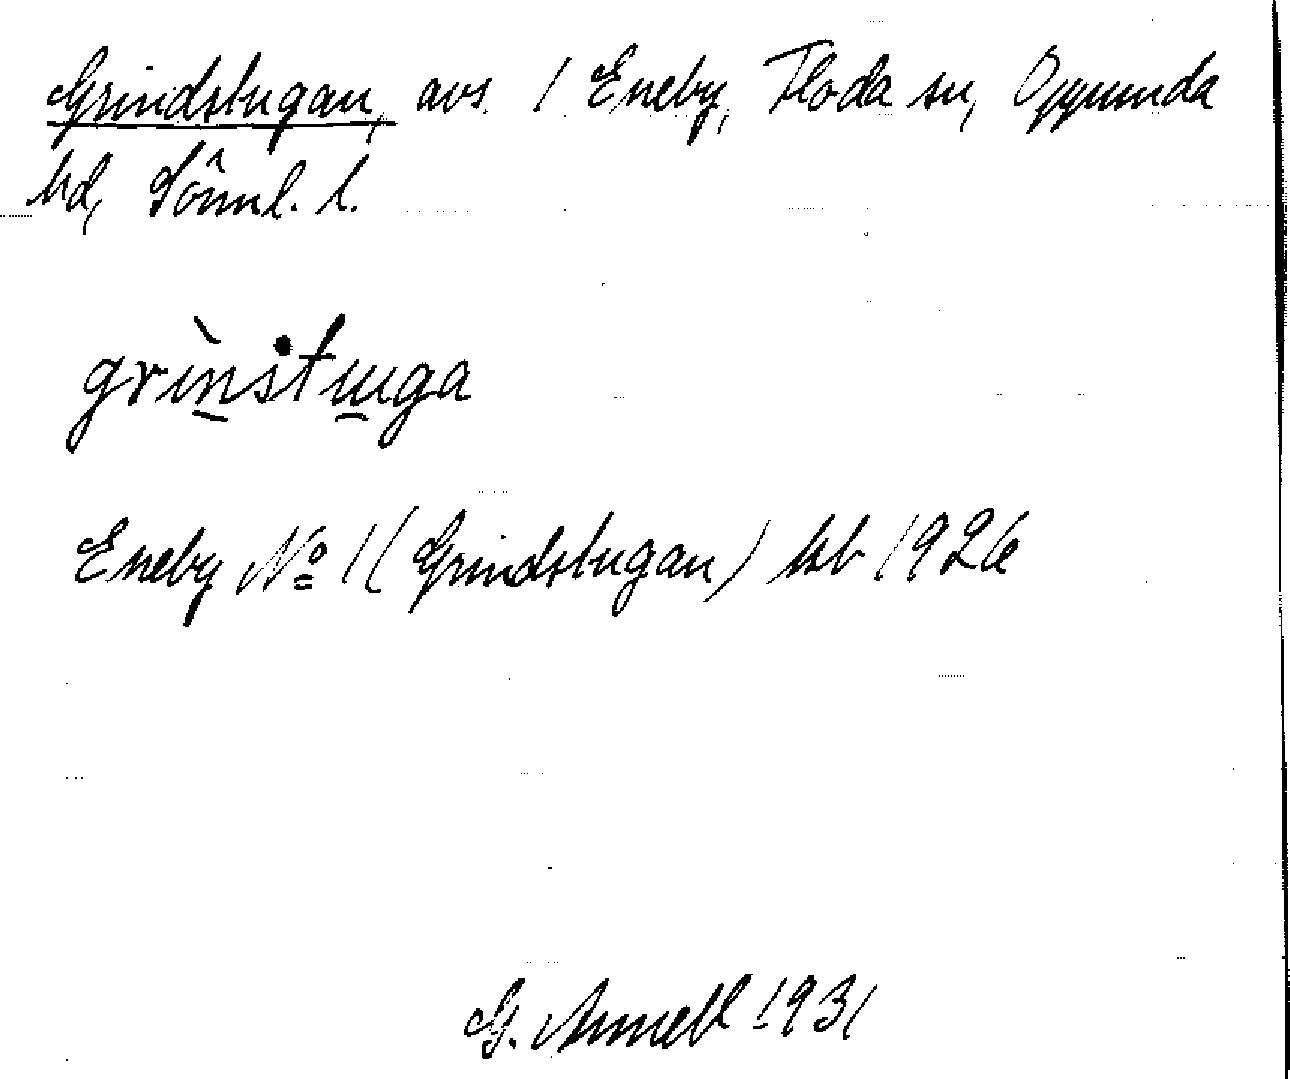 Grindstugan, avs. 1 Eneby, Floda sn, Oppunda
hd, Sörml. l.
grìnstuga
Eneby No 1 (Grindstugan) kb 1926
G. Armell 1931